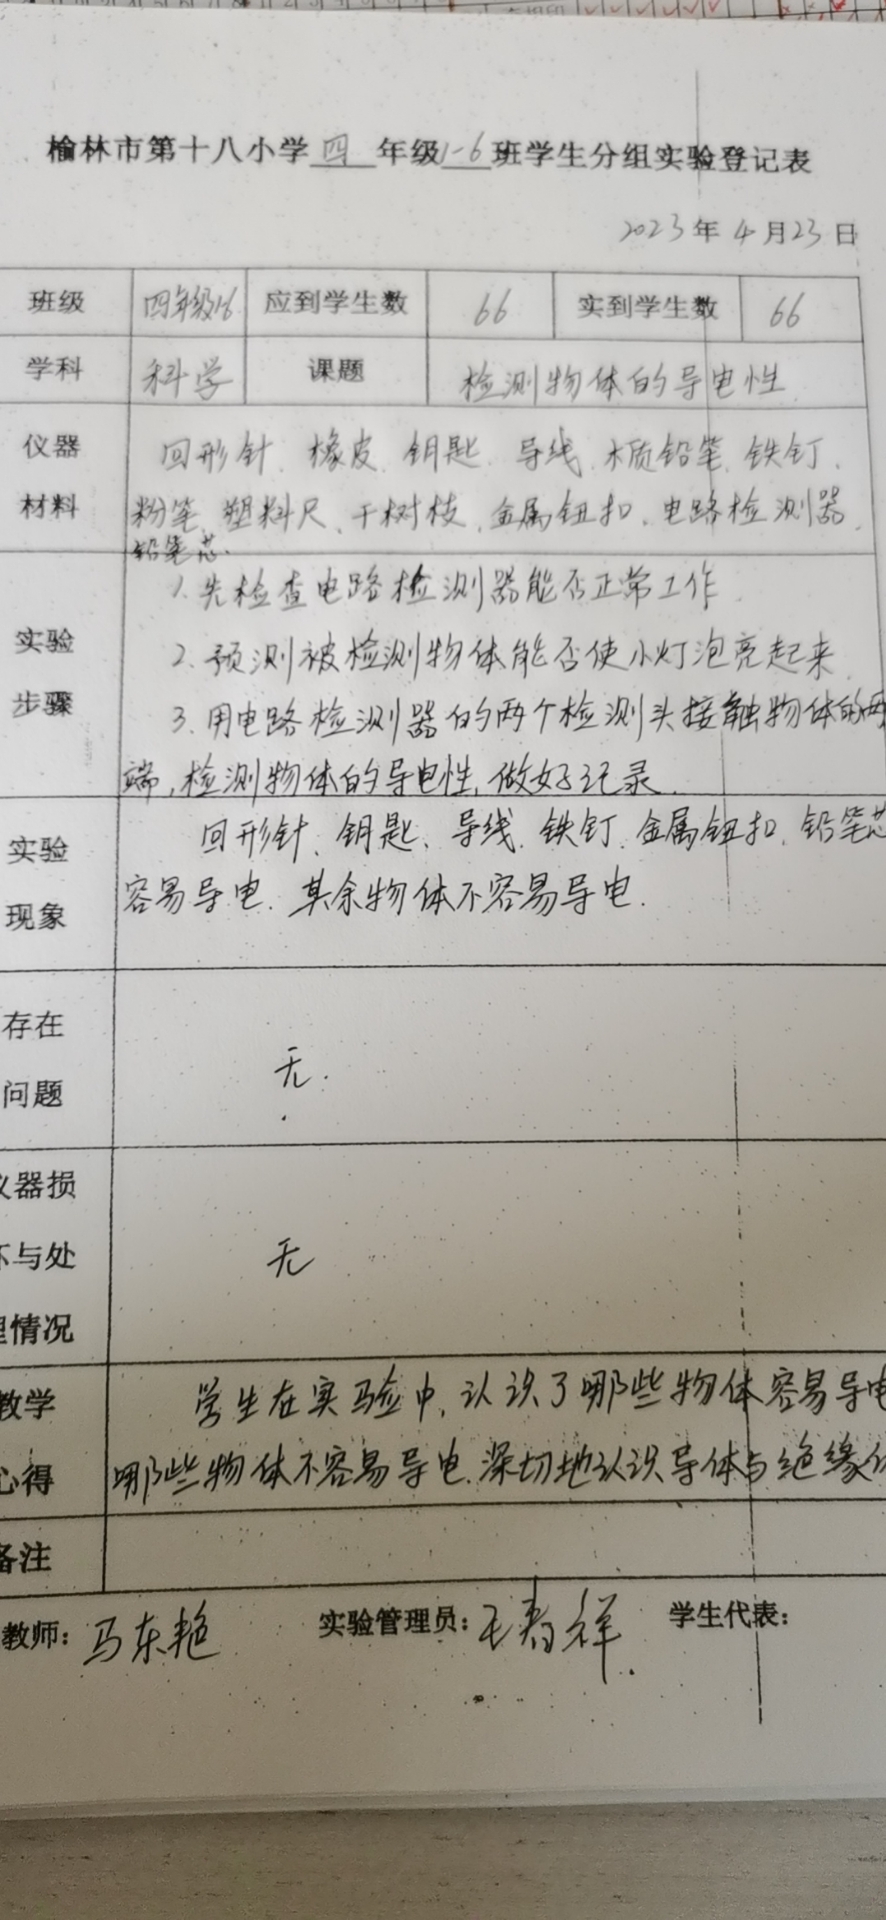 榆林市第十八小学四年级1-6班学生分组实验登记表
2023年4月23日
班级 四年级1-6 应到学生数 66 实到学生数 66
学科 科学 课题 检测物体的导电性
仪器材料
回形针、橡皮、钥匙、导线、木质铅笔、铁钉、
粉笔、塑料尺、干树枝、金属钮扣、电路检测器、
铅笔芯.
实验步骤
1.先检查电路检测器能否正常工作.
2.预测被检测物体能否使小灯泡亮起来
3.用电路检测器的两个检测头接触物体的两
端,检测物体的导电性,做好记录.
实验现象
回形针、钥匙、导线、铁钉、金属钮扣、铅笔芯
容易导电.其余物体不容易导电.
存在问题
无.
仪器损坏与处理情况
无
教学心得
学生在实验中,认识了哪些物体容易导电
哪些物体不容易导电.深切地认识导体与绝缘体
备注
教师：马东艳 实验管理员：王春祥 学生代表：